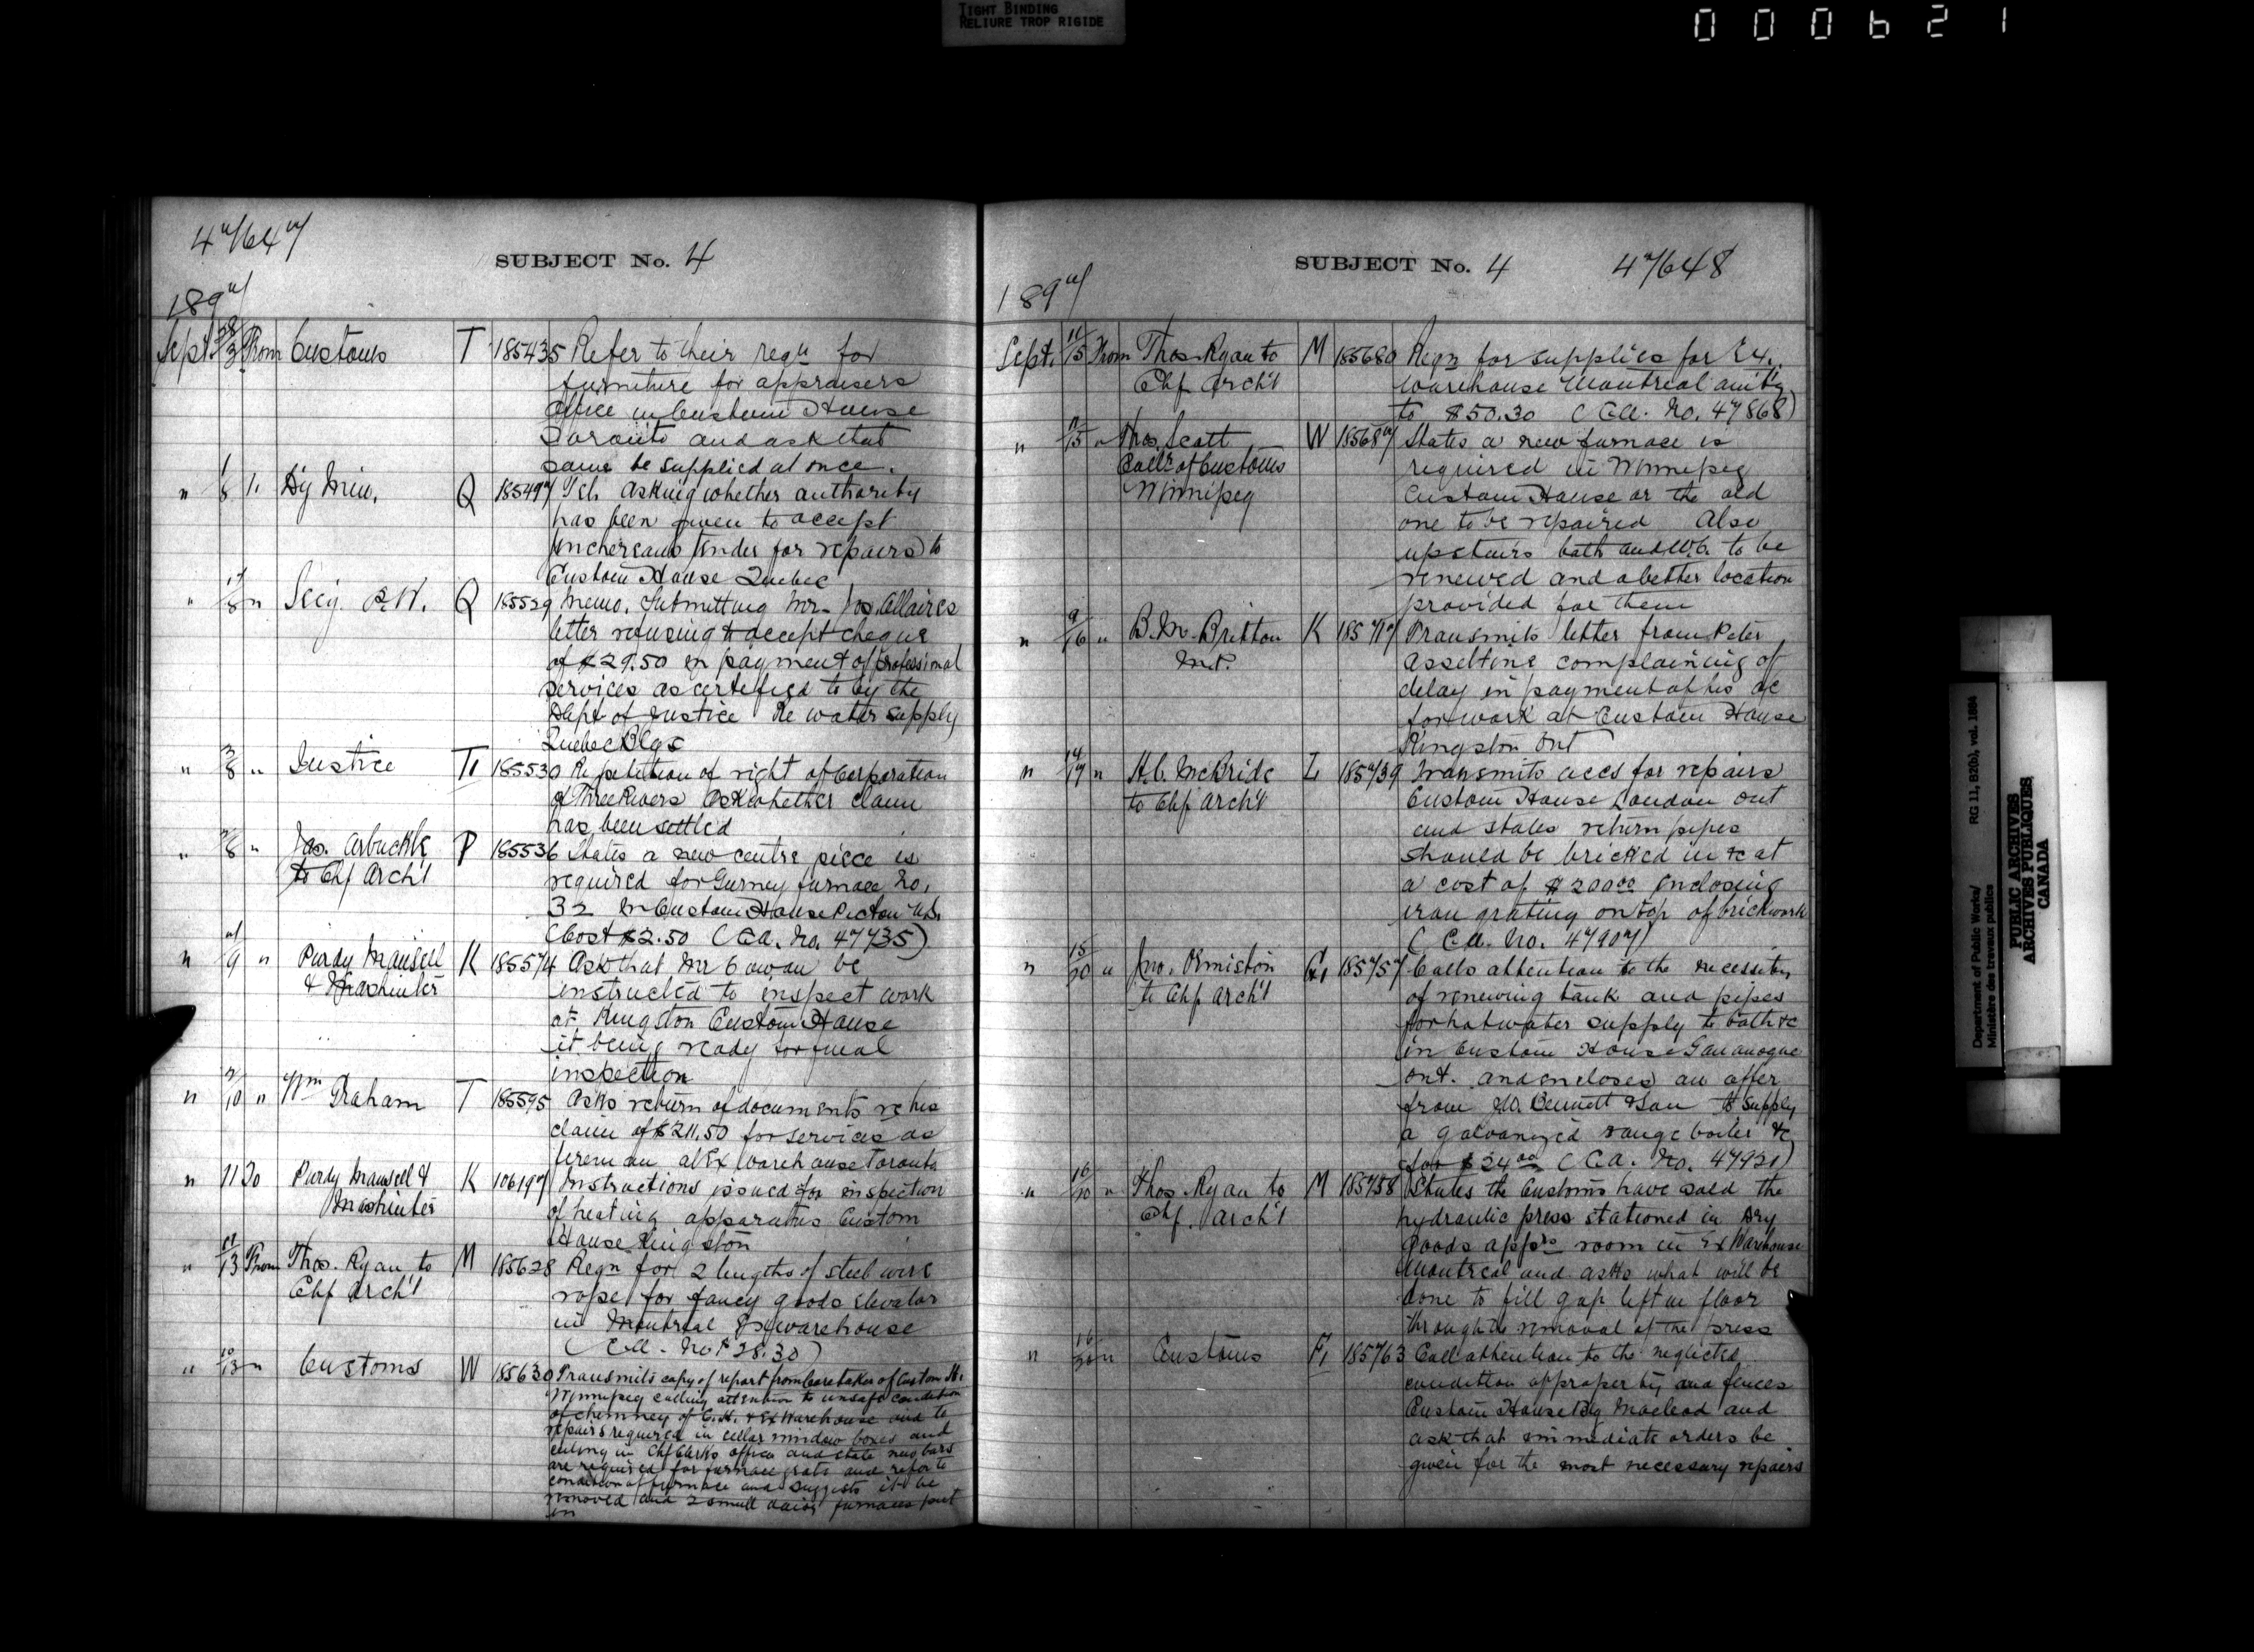 TIGHT BINDING
RELIURE TROP RIGIDE
000621
47647
SUBJECT No. 4
1897
Sept 28/3 From Customs T 185435 Refer to their reqn for
furniture for appraisers
office in Custom House
Toronto and ask that
same be supplied at once.
" 1/8 " Dy Min. Q 185497 Tel. asking whether authority
has been given to accept
tender for repairs to
Custom House Quebec
" 17/8 " Secy P.W. Q 185529 Memo. Submitting Mr. Jos. Allaires
letter refusing to accept cheque
of $29.50 in payment of professional
services as certified to by the
Dept of Justice Re water supply
Quebec Blgs
" 3/8 " Justice T1 185530 Re petition of right of Corporation
of Three Rivers Ask whether claim
has been settled
" 8 " Jas. Arbuckle P 185536 States a new centre piece is
to Chf Arch't required for Gurney furnace No.
32 in Custom House Picton N.S.
(Cost $2.50 (C.A. No. 47735)
" 7/9 " Purdy Mansell K 185574 Ask that Mr Cowan be
& Mashinter instructed to inspect work
at Kingston Custom House
it being ready for final
inspection
" 10 " Wm Graham T 185595 Asks return of documents re his
claim of $211.50 for services as
fireman at Ex Warehouse Toronto
" 11 To Purdy Mansell & K 106197 Instructions issued for inspection
Mashinter of heating apparatus Custom
House Kingston
" 11/13 From Thos. Ryan to M 185628 Reqn for 2 lengths of steel wire
Chf Arch't rope for fancy goods elevator
in Montreal Ex warehouse
" 10/13 " Customs W 185630 Transmits copy of report from Caretaker of Custom H.
Winnipeg calling attention to unsafe condition
of chimney of C.H. & Ex Warehouse and to
repairs required in cellar window boxes and
ceiling in Chf Clerks office and state new bars
are required for furnace grate and refer to
condition of furnace and suggests it be
removed and 2 small furnaces put
in
SUBJECT No. 4 47648
1897
Sept. 11/15 From Thos. Ryan to M 185680 Reqn for supplies for Ex.
Chf Arch't Warehouse Montreal amtg
to $50.30 (C.A. No. 47868)
" 11/15 " Thos. Scott W 185687 States a new furnace is
Collr of Customs required in Winnipeg
Winnipeg Custom House or the old
one to be repaired Also
upstairs bath and W.C. to be
renewed and a better location
provided for them
" 9/16 " B.M. Britton K 185717 Transmits letter from Peter
M.P. Asseltine complaining of
delay in payment of his a/c
for work at Custom House
Kingston Ont
" 14/17 " H.C. McBride L 185739 Transmits accs for repairs
to Chf Arch't Custom House London Ont
and states return pipes
should be bricked in &c at
a cost of $200.00 enclosing
iron grating on top of brickwork
(C.A. No. 47907)
" 15/20 " Jno. Ormiston G1 185757 Calls attention to the necessity
to Chf Arch't of renewing tank and pipes
for hot water supply to bath &c
in Custom House Gananoque
Ont. and encloses an offer
from Bennett & Son to supply
a galvanized range boiler &c
for $24.00 (C.A. No. 47921)
" 16/20 " Thos. Ryan to M 185758 States the Customs have sold the
Chf. Arch't hydraulic press stationed in Dry
Goods apprs room in Ex Warehouse
Montreal and asks what will be
done to fill gap left in floor
through the removal of the press
" 16/20 " Customs F1 185763 Call attention to the neglected
condition of property and fences
Custom House Blg Macleod and
ask that immediate orders be
given for the most necessary repairs
Department of Public Works/ RG 11, B2(b), vol. 1884
Ministère des travaux publics
PUBLIC ARCHIVES
ARCHIVES PUBLIQUES
CANADA